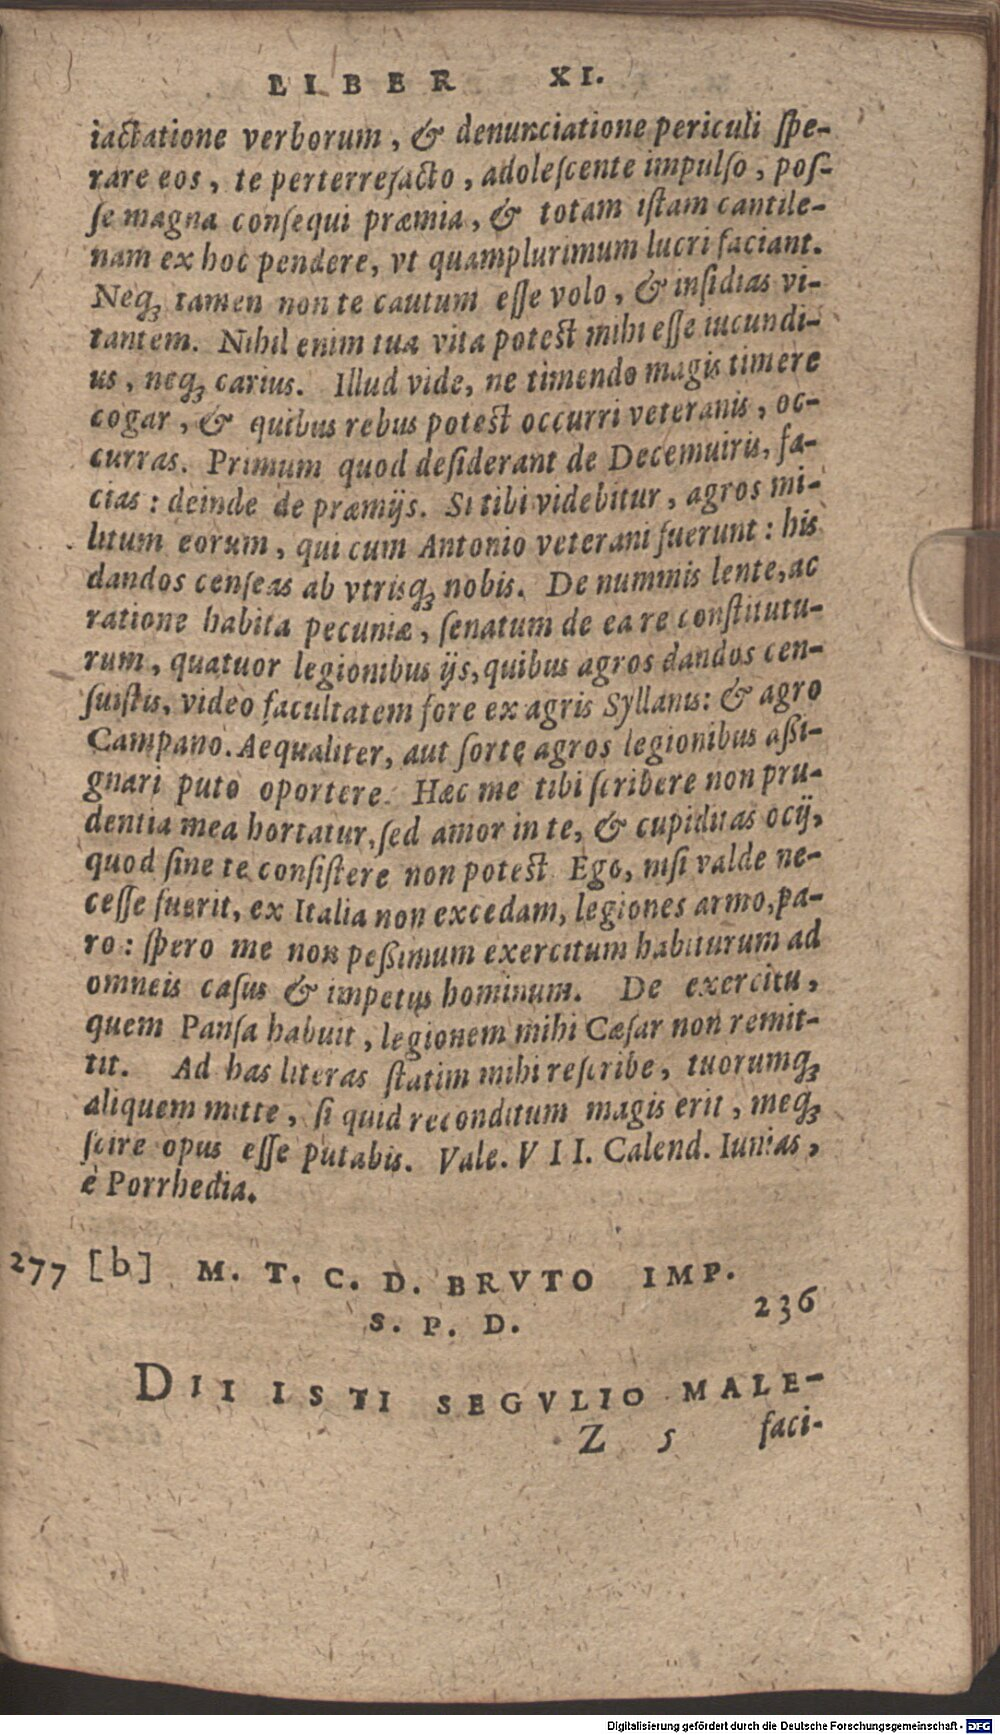 LIBER XI.
iactatione verborum, & denunciatione periculi ſpe-
rare eos, te perterrefacto, adoleſcente impulſo, poſ-
ſe magna conſequi præmia, & totam iſtam cantile-
nam ex hoc pendere, vt quamplurimum lucri faciant.
Neq; tamen non te cautum eſſe volo, & inſidias vi-
tantem. Nihil enim tua vita poteſt mihi eſſe iucundi-
us, neq; carius. Illud vide, ne timendo magis timere
cogar, & quibus rebus poteſt occurri veteranis, oc-
curras. Primum quod deſiderant de Decemuiris, fa-
cias: deinde de præmijs. Si tibi videbitur, agros mi-
litum eorum, qui cum Antonio veterani fuerunt: his
dandos cenſeas ab vtrisq; nobis. De nummis lente, ac
ratione habita pecuniæ, ſenatum de ea re conſtitutu-
rum, quatuor legionibus ijs, quibus agros dandos cen-
ſuiſtis, video facultatem fore ex agris Syllanis: & agro
Campano. Aequaliter, aut ſorte agros legionibus aßi-
gnari puto oportere. Hæc me tibi ſcribere non pru-
dentia mea hortatur, ſed amor in te, & cupiditas ocij,
quod ſine te conſiſtere non poteſt. Ego, niſi valde ne-
ceſſe fuerit, ex Italia non excedam, legiones armo, pa-
ro: ſpero me non peßimum exercitum habiturum ad
omneis caſus & impetus hominum. De exercitu,
quem Panſa habuit, legionem mihi Cæſar non remit-
tit. Ad has literas ſtatim mihi reſcribe, tuorumq;
aliquem mitte, ſi quid reconditum magis erit, meq;
ſcire opus eſſe putabis. Vale. VII. Calend. Iunias,
è Porrhedia.
277 [b] M. T. C. D. BRVTO IMP.
S. P. D. 236
DII ISTI SEGVLIO MALE-
Z 5 faci-
Digitalisierung gefördert durch die Deutsche Forschungsgemeinschaft - DFG